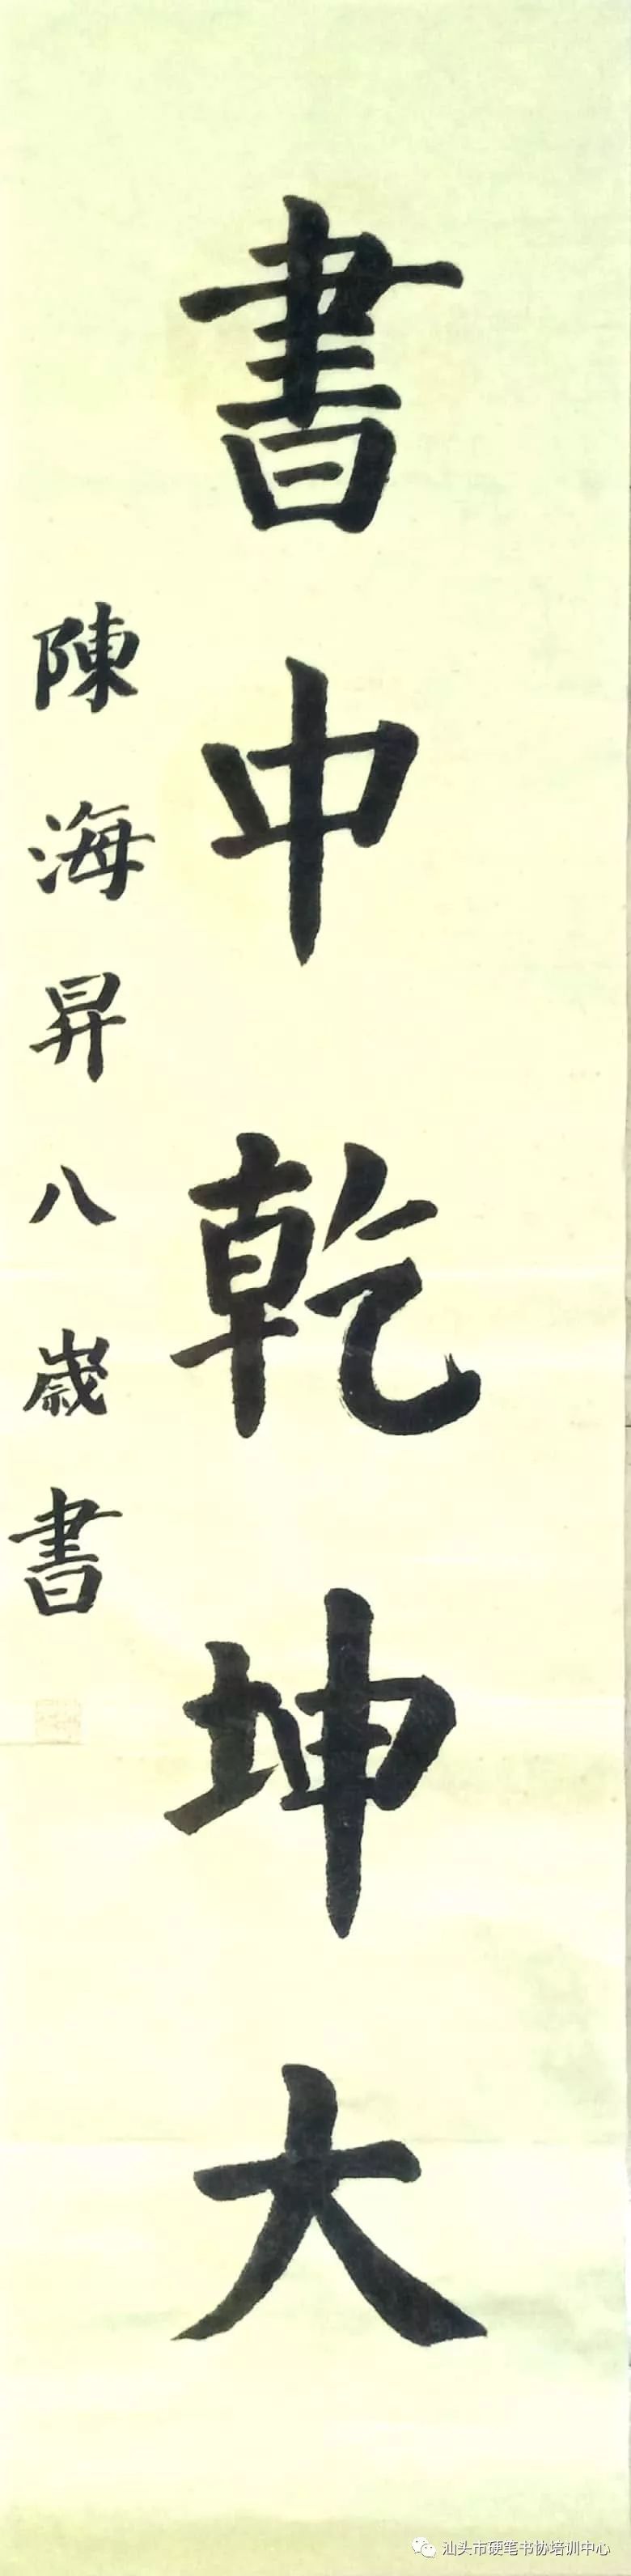 書中乾坤大
陳海昇八歲書
汕头市硬笔书协培训中心